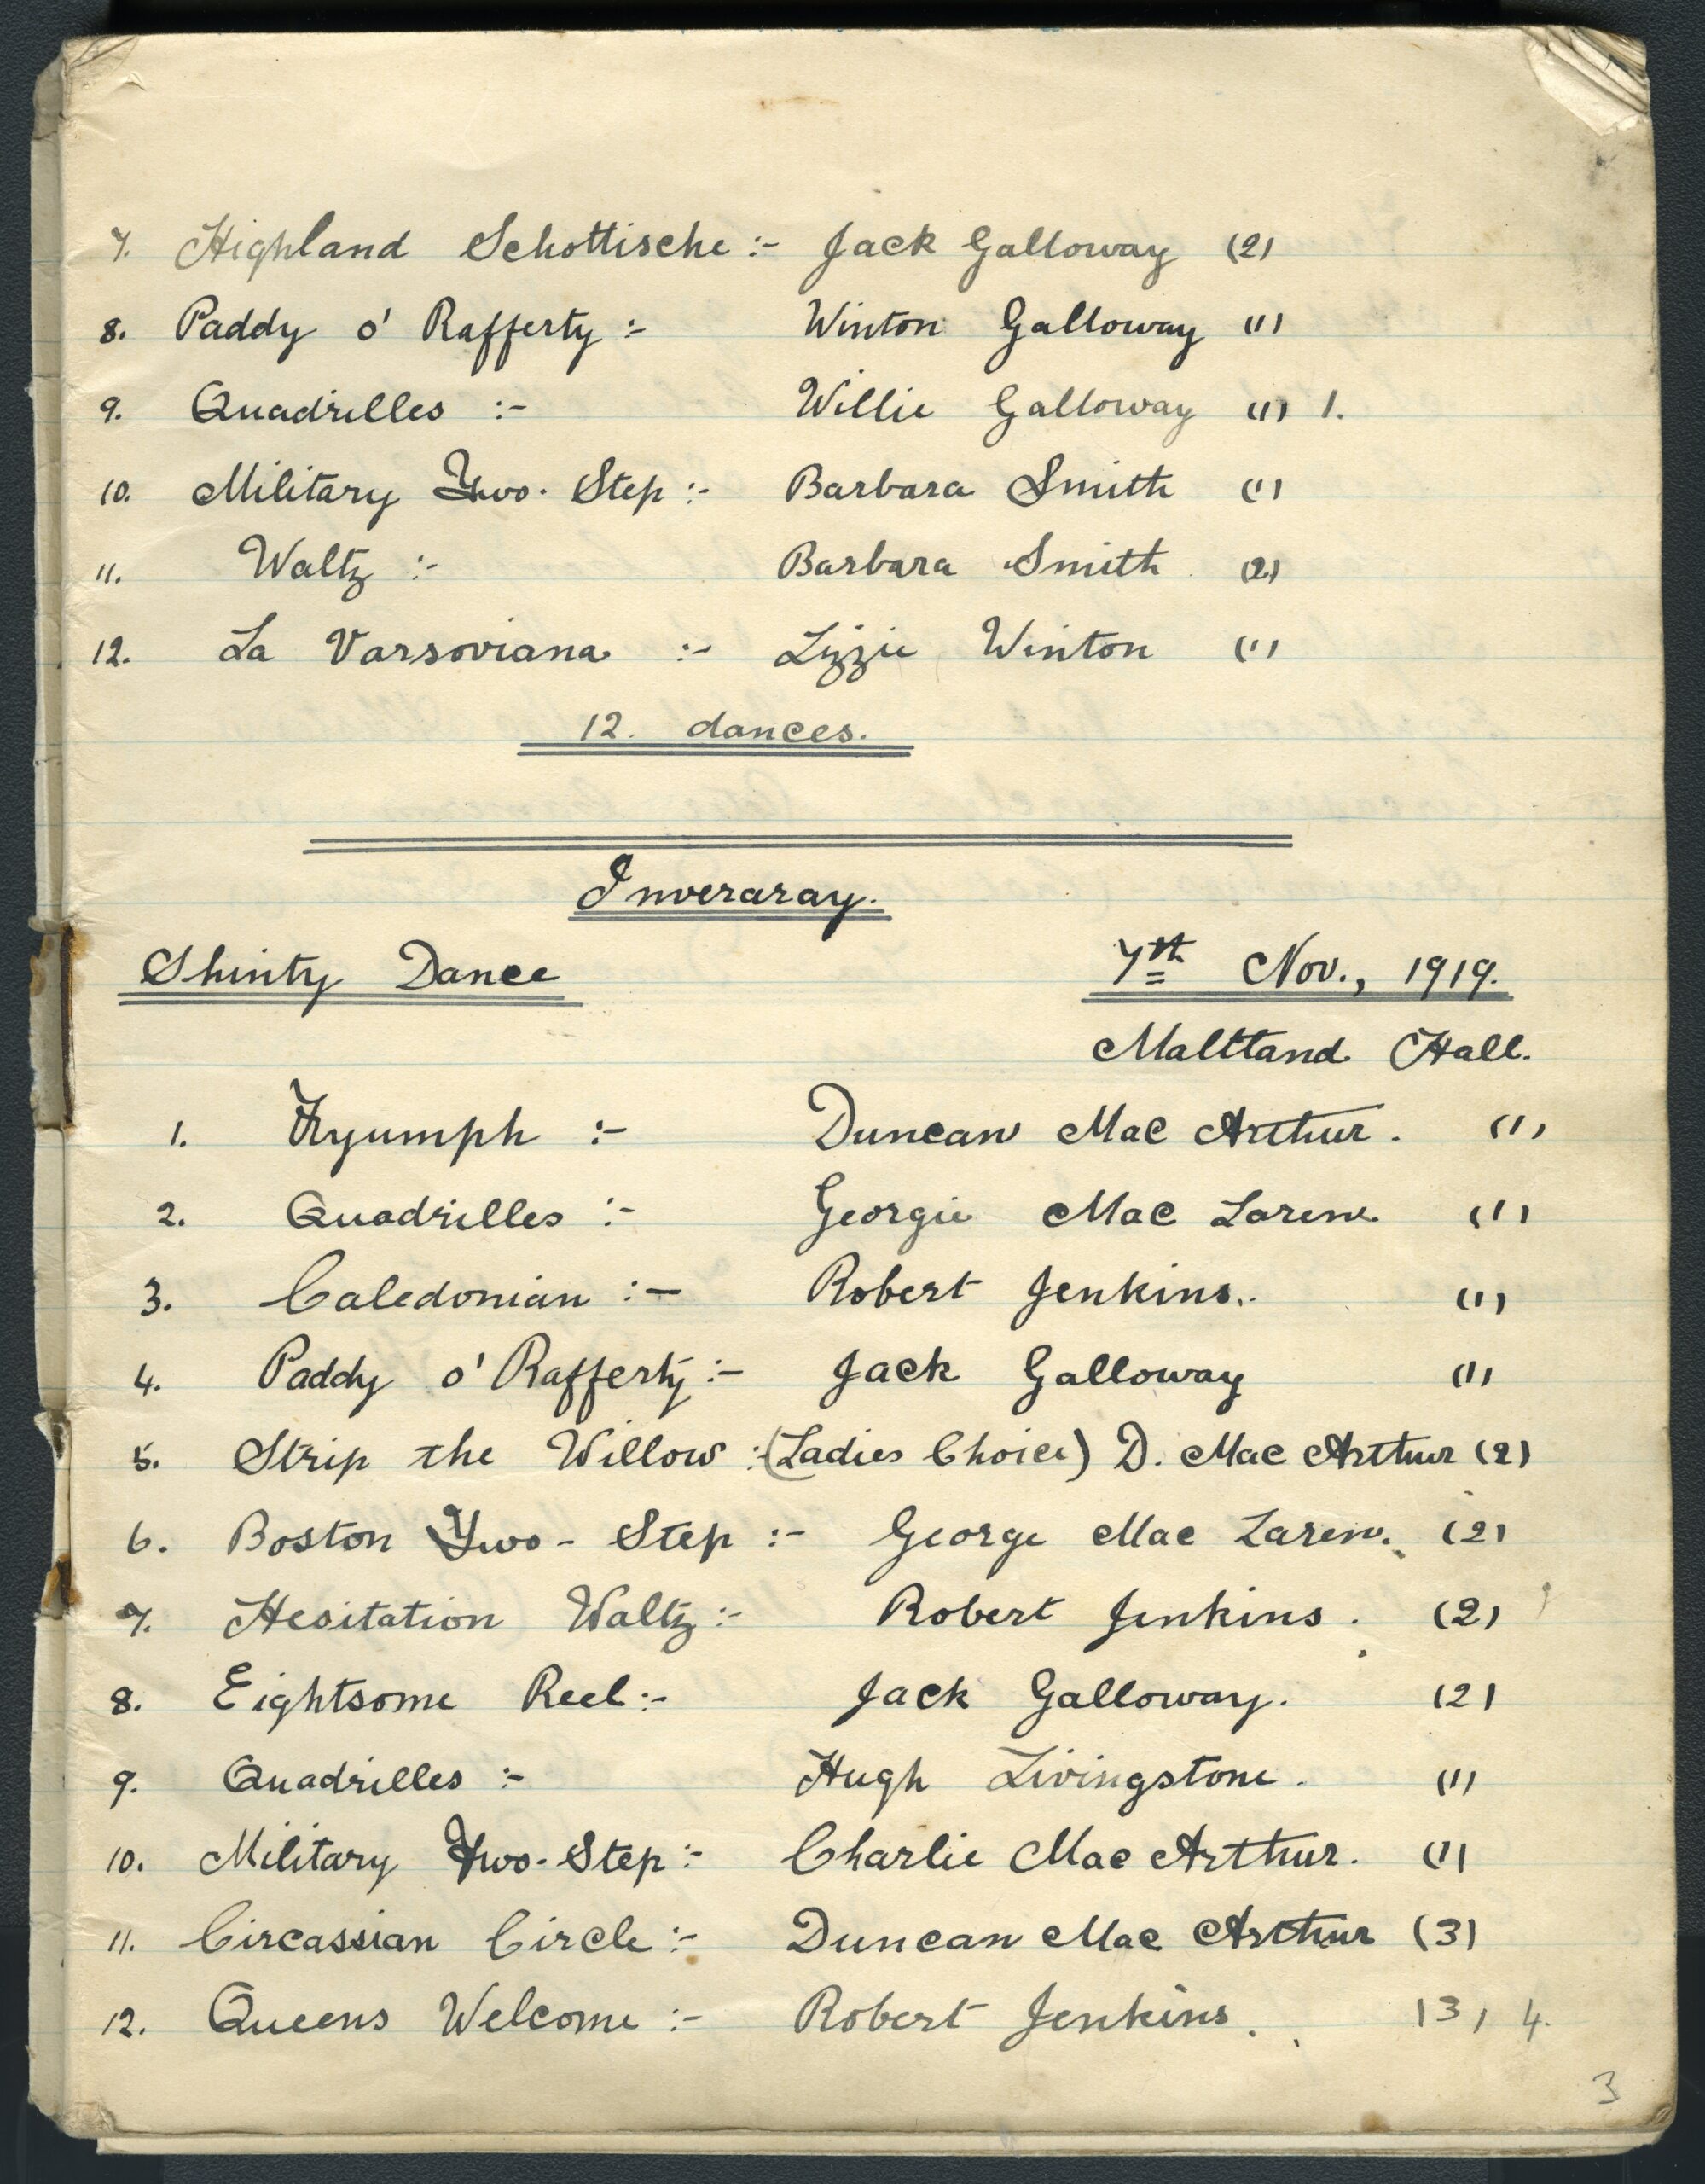 7. Highland Schottische :- Jack Galloway (2)
8. Paddy o' Rafferty :- Winton Galloway (1)
9. Quadrilles :- Willie Galloway (1) 1.
10. Military Two-Step :- Barbara Smith (1)
11. Waltz :- Barbara Smith (2)
12. La Varsoviana :- Lizzie Winton (1)
12. dances.
Inveraray.
Shinty Dance 7th Nov., 1919.
Maltland Hall.
1. Tryumph :- Duncan Mac Arthur. (1)
2. Quadrilles :- Georgie Mac Laren (1)
3. Caledonian :- Robert Jenkins. (1)
4. Paddy o' Rafferty :- Jack Galloway (1)
5. Strip the Willow :- (Ladies Choice) D. Mac Arthur (2)
6. Boston Two-Step :- George Mac Laren. (2)
7. Hesitation Waltz :- Robert Jenkins. (2)
8. Eightsome Reel :- Jack Galloway. (2)
9. Quadrilles :- Hugh Livingstone. (1)
10. Military Two-Step :- Charlie Mac Arthur. (1)
11. Circassian Circle :- Duncan Mac Arthur (3)
12. Queens Welcome :- Robert Jenkins. (3) 4.
3